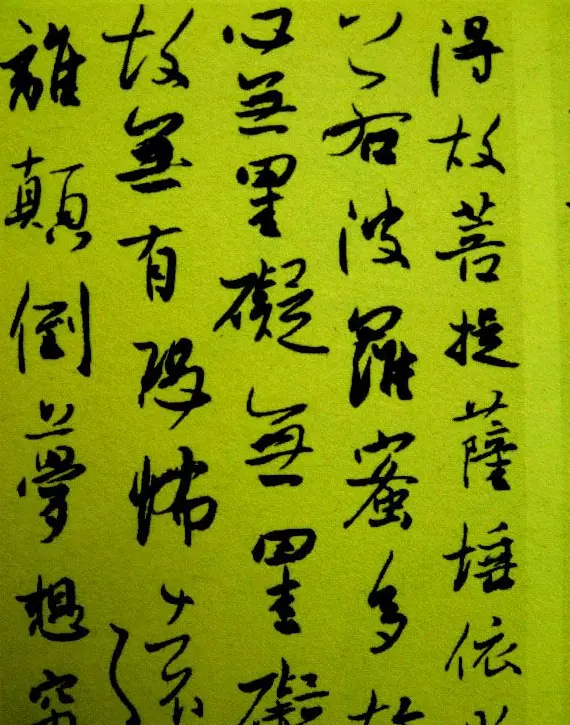 得故菩提薩埵依
若波羅蜜多故
心無罣礙無罣礙
故無有恐怖遠
離顛倒夢想究